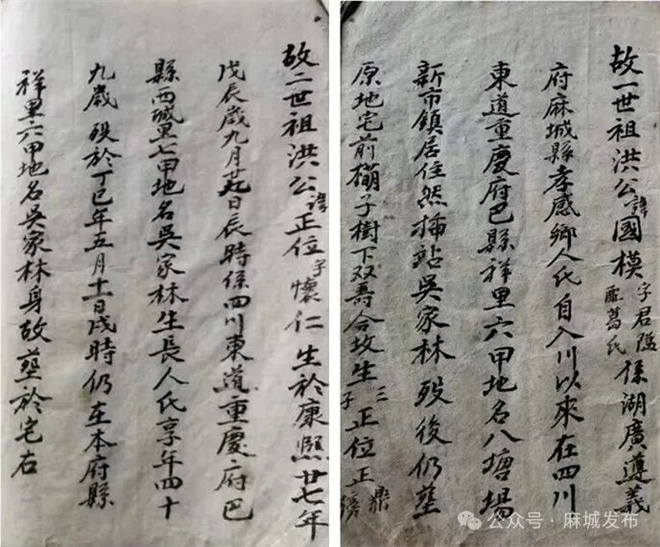 故一世祖洪公諱國模字君隘配葛氏係湖廣遵義
府麻城縣孝感鄉人氏自入川以來在四川
東道重慶府巴縣祥里六甲地名八塘場
新市鎮居住然插站吳家林歿後仍塟
原地宅前樃子樹下双吾合坟生三子正位正鼎
故二世祖洪公諱正位字懷仁生於康熙廿七年
戊辰歲九月廿九日辰時係四川東道重慶府巴
縣西城里七甲地名吳家林生長人氏享年四十
九歲歿於丁巳年五月十一日戌時仍在本府縣
祥里六甲地名吳家林身故塟於宅右
公众号·麻城发布